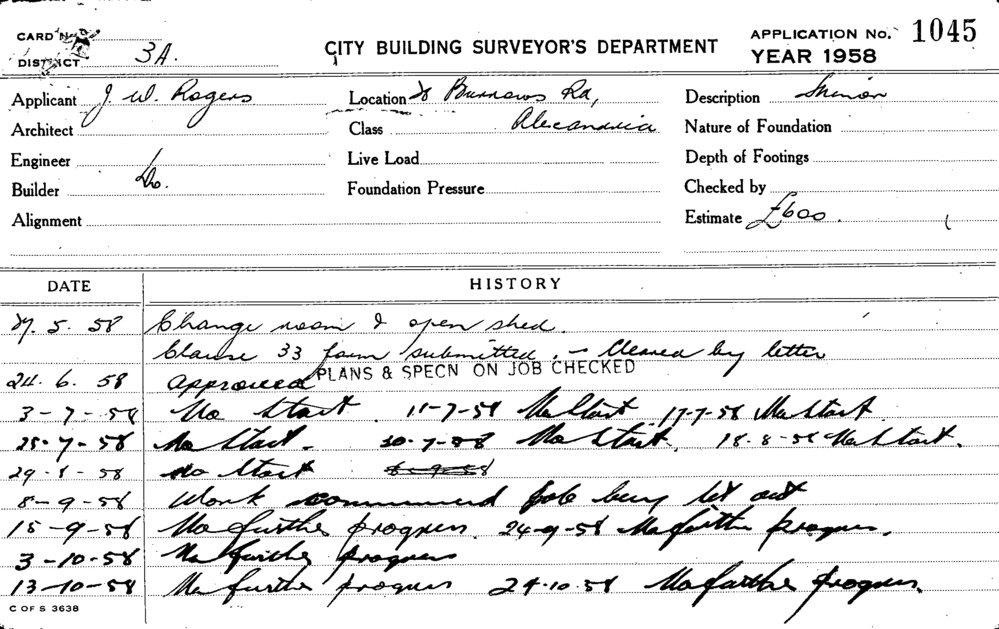 CARD No.
DISTRICT 3A.
CITY BUILDING SURVEYOR'S DEPARTMENT
APPLICATION No. 1045
YEAR 1958
Applicant J. W. Rogers
Location Burrows Rd,
Description Minor
Architect
Class Alexandria
Nature of Foundation
Engineer
Live Load
Depth of Footings
Builder Do.
Foundation Pressure
Checked by
Alignment
Estimate £600.
DATE HISTORY
5. 58 Change room & open shed.
Clause 33 form submitted. - Cleared by letter
24. 6. 58 Approved PLANS & SPECN ON JOB CHECKED
3-7-58 No Start 11-7-58 No Start 17-7-58 No Start
25-7-58 No Start. 30-7-58 No Start. 18-8-58 No Start.
29-8-58 No Start
8-9-58 Work commenced job being set out
15-9-58 No further progress. 24-9-58 No further progress.
3-10-58 No further progress
13-10-58 No further progress 24-10-58 No further progress.
C OF S 3638